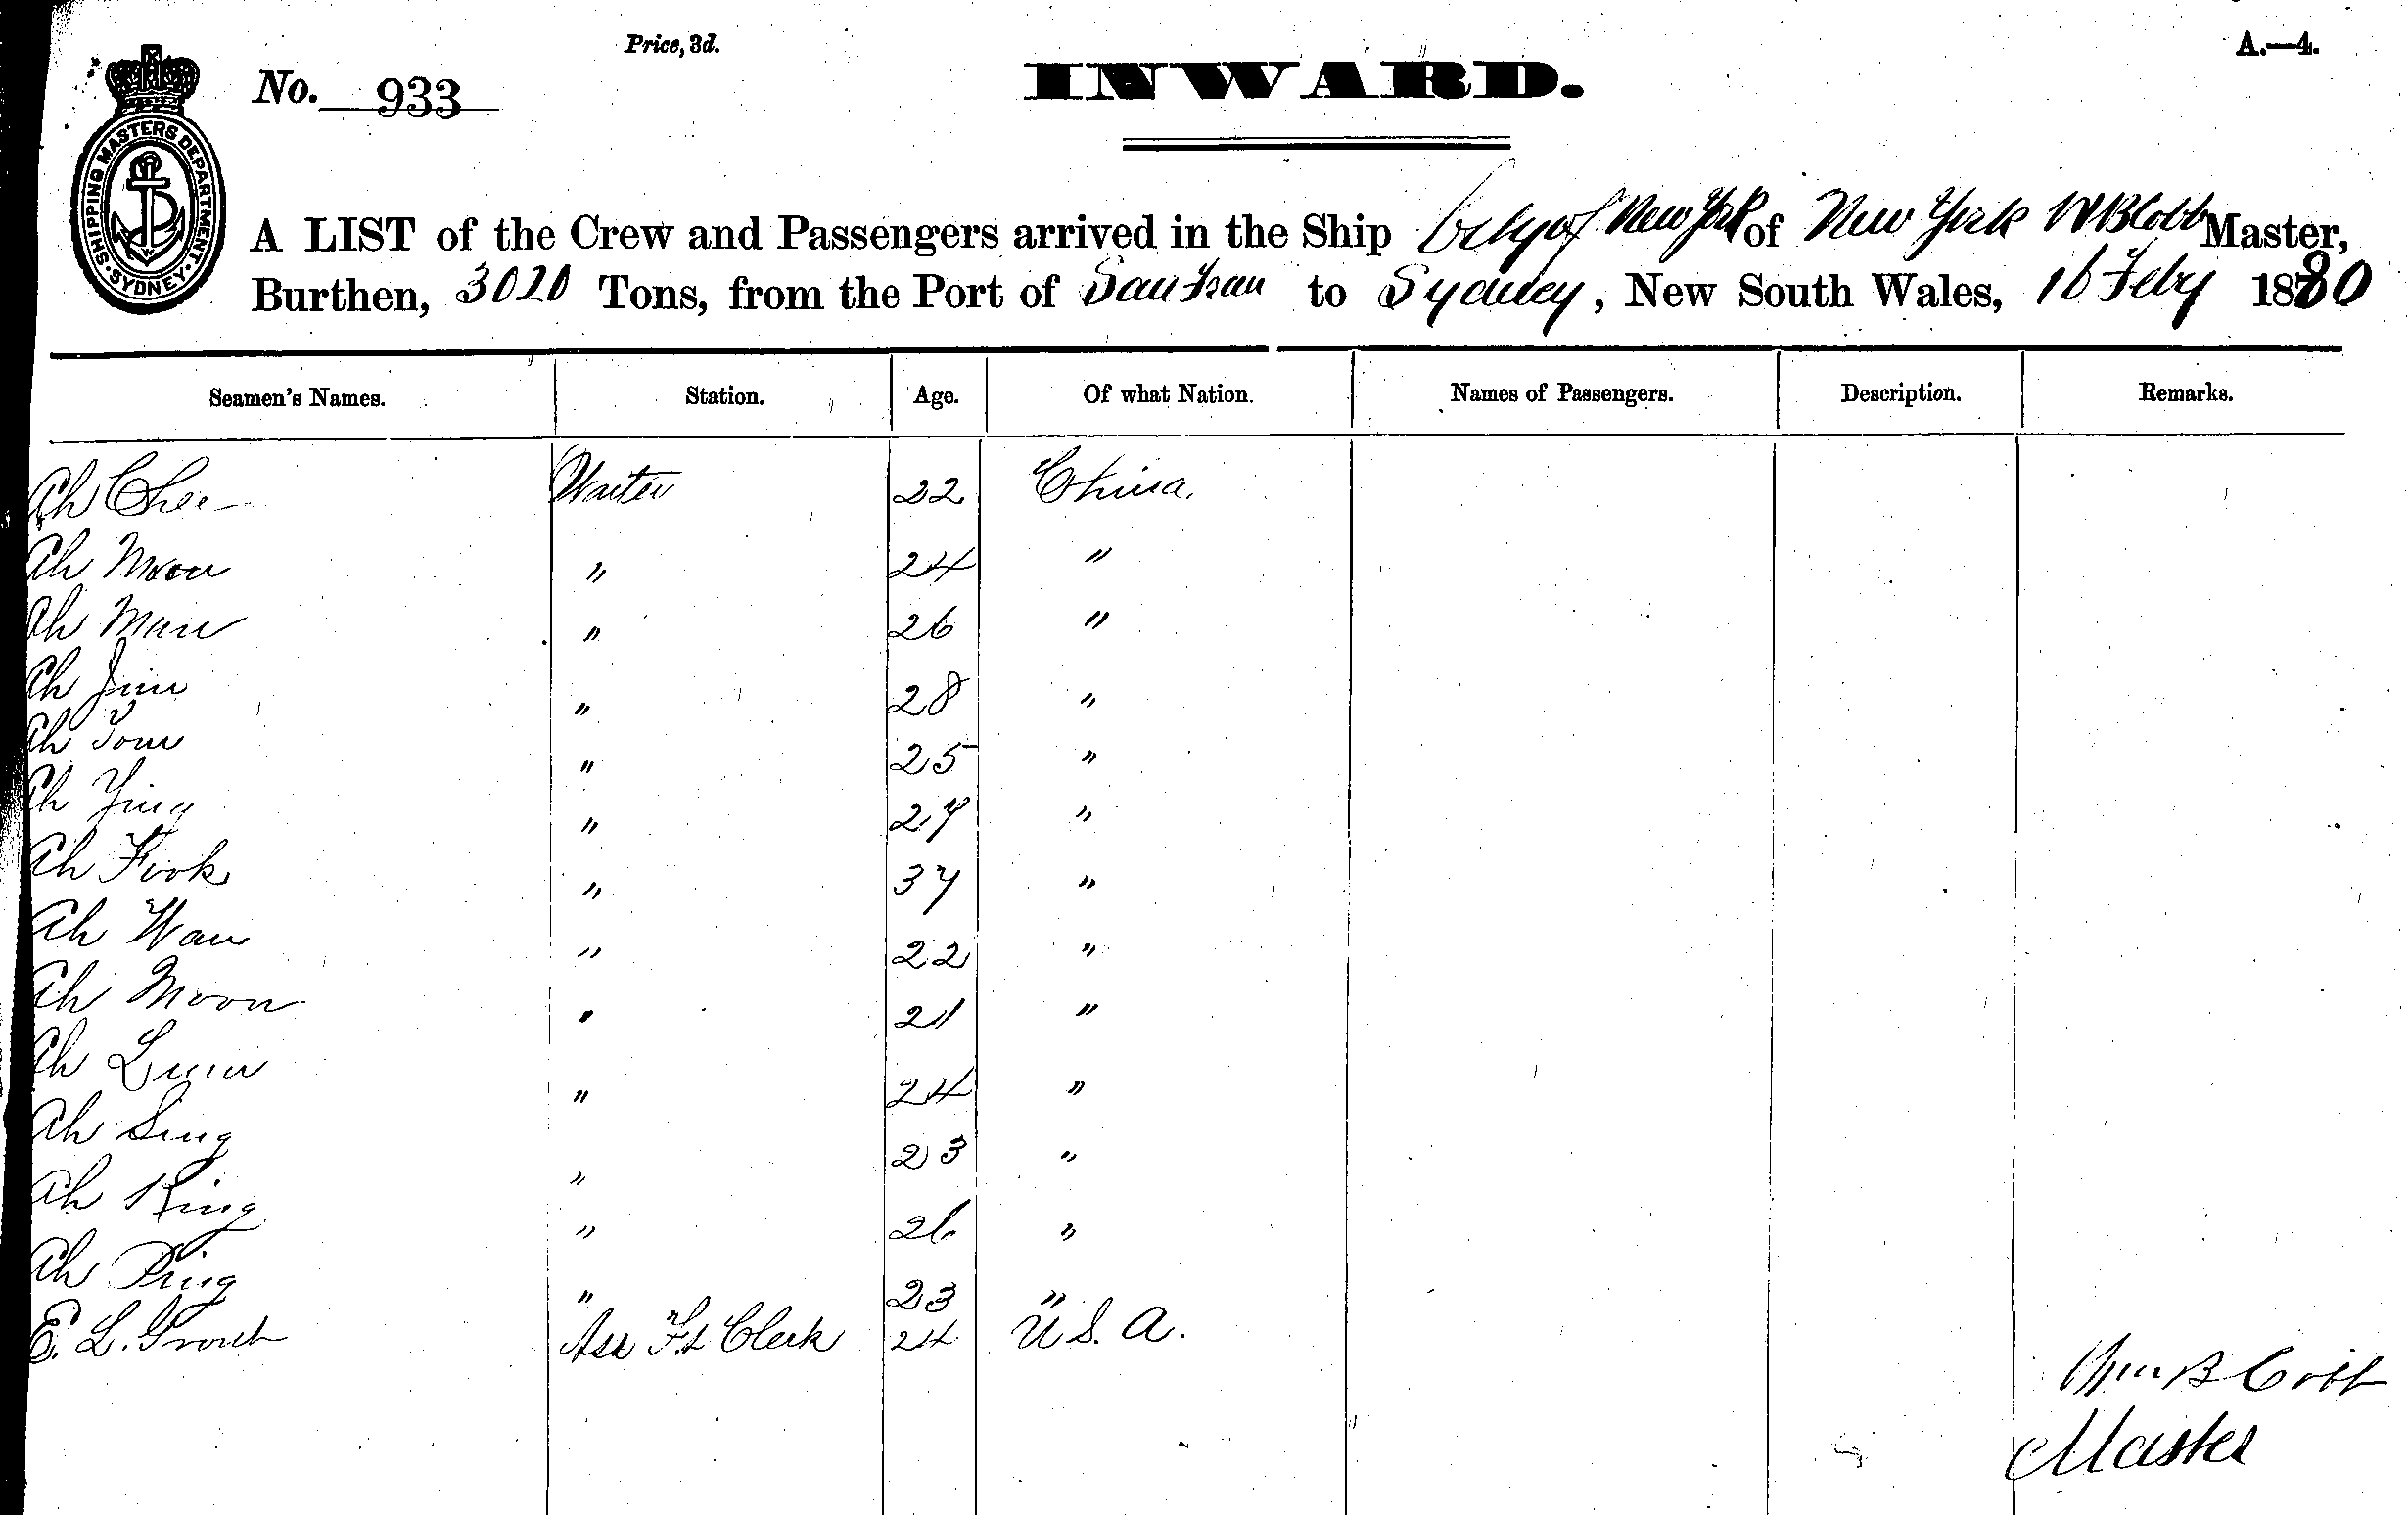 Price, 3d.
A.—4.
No. 933
INWARD.
SHIPPING MASTERS DEPARTMENT · SYDNEY ·
A LIST of the Crew and Passengers arrived in the Ship City of New York of New York W B Cobb Master,
Burthen, 3020 Tons, from the Port of San Fran to Sydney, New South Wales, 16 Feby 1880
Seamen's Names. Station. Age. Of what Nation. Names of Passengers. Description. Remarks.
Ah Chee Waiter 22 China.
Ah Moon " 24 "
Ah Mun " 26 "
Ah Jim " 28 "
Ah Tom " 25 "
Ah Ying " 27 "
Ah Fook " 37 "
Ah Wan " 22 "
Ah Moon " 21 "
Ah Lum " 24 "
Ah Sing " 23 "
Ah King " 26 "
Ah Ping " 23 "
E. L. Grout Ass Ft Clerk 24 U S. A.
Wm B Cobb
Master